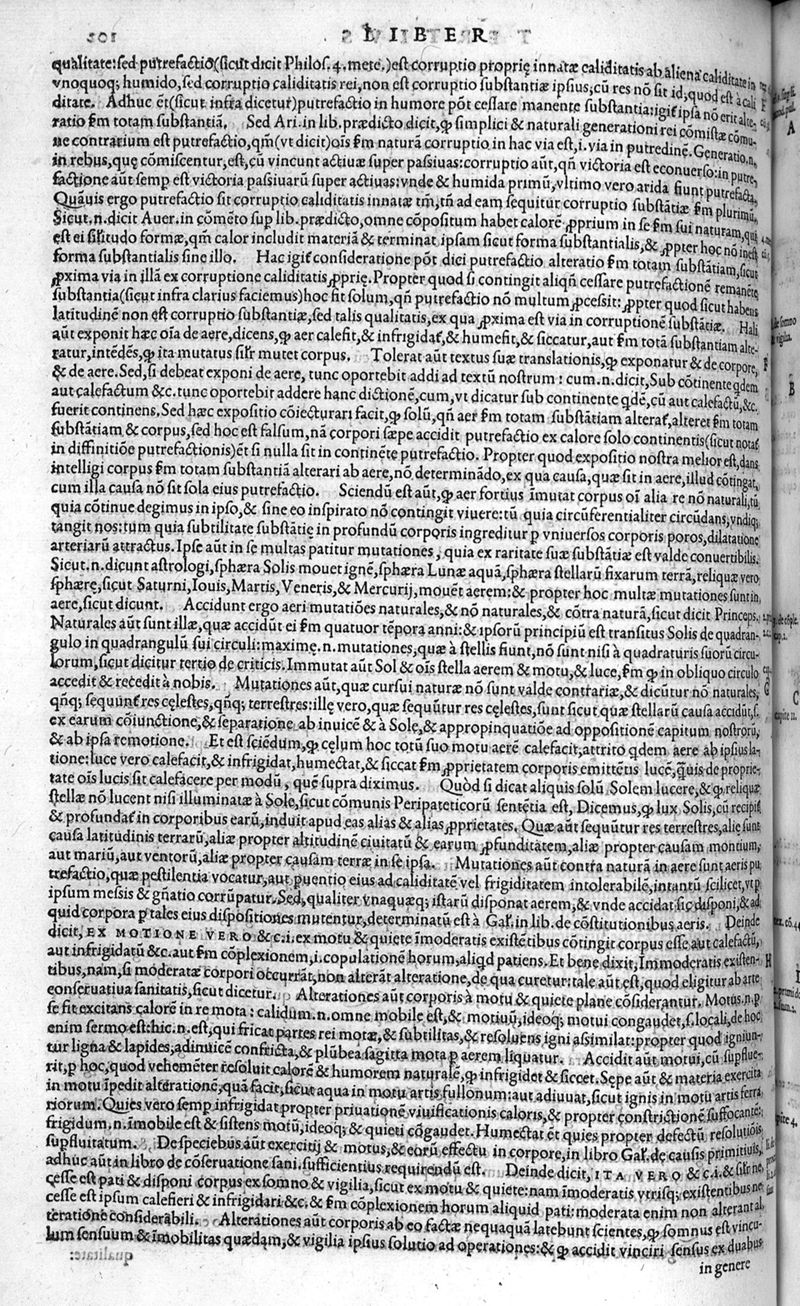 LIBER
qualitate: sed putrefactio (sicut dicit Philos. 4. mete.) est corruptio proprię innatæ caliditatis ab aliena caliditate in
vnoquoq; humido, sed corruptio caliditatis rei, non est corruptio substantiæ ipsius, cũ res nõ sit id, quod est à cali
ditate. Adhuc ẽt (sicut infra dicetur) putrefactio in humore põt cessare manente substantia: igiť ipsa nõ erit alte-
ratio ẜm totam substantiã. Sed Ari. in lib. prædicto dicit, ꝙ simplici & naturali generationi rei comistæ cõmu-
ne contrarium est putrefactio, qm̃ (vt dicit) oĩs ẜm naturã corruptio in hac via est, i. via in putredinẽ. Generatio.n.
in rebus, quę cõmiscentur, est, cũ vincunt actiuæ super passiuas: corruptio aũt, qñ victoria est econuerso: in putre
factione aũt semp est victoria passiuarũ super actiuas: vnde & humida primũ, vltimo vero arida fiunt putrefacta.
Quãuis ergo putrefactio sit corruptio caliditatis innatæ tm̃, tñ ad eam sequitur corruptio substãtiæ ẜm plurimũ,
Sicut.n. dicit Auer. in cõmẽto sup lib. prædicto, omne cõpositum habet calorẽ ꝓprium in se ẜm sui naturam, qui
est ei similitudo formæ, qm̃ calor includit materiã & terminat ipsam sicut forma substantialis, & ꝓpter hoc nõ inest
forma substantialis sine illo. Hac igiť consideratione põt dici putrefactio alteratio ẜm totam substãtiam, sicut
ꝓxima via in illã ex corruptione caliditatis ꝓprię. Propter quod si contingit aliqñ cessare putrefactionẽ remanẽte
substantia (sicut infra clarius faciemus) hoc fit solum, qñ putrefactio nõ multum ꝓcessit: ꝓpter quod sicut habens
latitudinẽ non est corruptio substantiæ, sed talis qualitatis, ex qua ꝓxima est via in corruptionẽ substãtiæ. Hali
aũt exponit hæc oĩa de aere, dicens, ꝙ aer calefit, & infrigidať, & humefit, & siccatur, aut ẜm totã substantiam alte-
ratur, intẽdẽs, ꝙ ita mutatus silr mutet corpus. Tolerat aũt textus suæ translationis, ꝙ exponatur & de corpore,
& de aere. Sed, si debeat exponi de aere, tunc oportebit addi ad textũ nostrum: cum.n. dicit, Sub cõtinente qdem
aut calefactum &c. tunc oportebit addere hanc dictionẽ, cum, vt dicatur sub continente qdẽ, cũ aut calefactũ, &c.
fuerit continens. Sed hæc expositio cõiecturari facit, ꝙ solũ, qñ aer ẜm totam substãtiam alterať, alteret ẜm totam
substãtiam & corpus, sed hoc est falsum, nã corpori sæpe accidit putrefactio ex calore solo continentis (sicut notať
in diffinitiõe putrefactionis) ẽt si nulla sit in continẽte putrefactio. Propter quod expositio nostra melior est, dans
intelligi corpus ẜm totam substantiã alterari ab aere, nõ determinãdo, ex qua causa, quæ sit in aere, illud cõtingat,
cum illa causa nõ sit sola eius putrefactio. Sciendũ est aũt, ꝙ aer fortius ĩmutat corpus oĩ alia re nõ naturali, tũ
quia cõtinue degimus in ipso, & sine eo inspirato nõ contingit viuere: tũ quia circũferentialiter circũdans, vndiq;
tangit nos: tum quia subtilitate substãtię in profundũ corporis ingreditur p vniuersos corporis poros, dilatatione
arteriarũ attractus. Ipse aũt in se multas patitur mutationes, quia ex raritate suæ substãtiæ est valde conuertibilis.
Sicut.n. dicunt astrologi, sphæra Solis mouet ignẽ, sphæra Lunæ aquã, sphæra stellarũ fixarum terrã, reliquæ vero
sphæræ, sicut Saturni, Iouis, Martis, Veneris, & Mercurij, mouẽt aerem: & propter hoc multæ mutationes sunt in
aere, sicut dicunt. Accidunt ergo aeri mutatiões naturales, & nõ naturales, & cõtra naturã, sicut dicit Princeps.
Naturales aũt sunt illæ, quæ accidũt ei ẜm quatuor tẽpora anni: & ipsorũ principiũ est transitus Solis de quadran-
gulo in quadrangulũ sui circuli: maximę.n. mutationes, quæ à stellis fiunt, nõ sunt nisi à quadraturis suorũ circu-
lorum, sicut dicitur tertio de criticis. Immutat aũt Sol & oĩs stella aerem & motu, & luce, ẜm ꝙ in obliquo circulo
accedit & recedit à nobis. Mutationes aũt, quæ cursui naturæ nõ sunt valde contrariæ, & dicũtur nõ naturales,
qñq; sequunť res cęlestes, qñq; terrestres: ille vero, quæ sequũtur res cęlestes, sunt sicut quæ stellarũ causa accidũt, s.
ex earum cõiunctione, & separatione ab inuicẽ & à Sole, & appropinquatiõe ad oppositionẽ capitum nostrorũ,
& ab ipsa remotione. Et est sciẽdum, ꝙ cęlum hoc totũ suo motu aerẽ calefacit, attrito qdem aere ab ipsius la-
tione: luce vero calefacit, & infrigidat, humectat, & siccat ẜm ꝓprietatem corporis emittẽtis lucẽ, q̃uis de proprie-
tate oĩs lucis sit calefacere per modũ, quẽ supra diximus. Quòd si dicat aliquis solũ Solem lucere, & ꝙ reliquæ
stellæ nõ lucent nisi illuminatæ à Sole, sicut cõmunis Peripateticorũ sentẽtia est, Dicemus, ꝙ lux Solis, cũ recipiť
& profundať in corporibus earũ, induit apud eas alias & alias ꝓprietates. Quæ aũt sequũtur res terrestres, alię sunt
causa latitudinis terrarũ, aliæ propter altitudinẽ ciuitatũ & earum ꝓfunditatẽ, aliæ propter causam montium,
aut mariũ, aut ventorũ, aliæ propter causam terræ in se ipsa. Mutationes aũt contra naturã in aere sunt aeris pu
trefactio, quæ pestilentia vocatur, aut puentio eius ad caliditatẽ vel frigiditatem intolerabilẽ, intantũ scilicet, vt p
ipsum messis & gñatio corrũpatur. Sed, qualiter vnaquæq; istarũ disponat aerem, & vnde accidat sic disponi, & ad
quid corpora p tales eius dispositiones mutentur, determinatũ est à Gal. in lib. de cõstitutionibus aeris. Deinde
dicit, EX MOTIONE VERO &c. i. ex motu & quiete ĩmoderatis existẽtibus cõtingit corpus esse aut calefactũ,
aut infrigidatũ &c. aut ẜm cõplexionẽm, i. copulationẽ horum, aliqd patiens. Et bene dixit, Immoderatis existen-
tibus, nam, si moderatæ corpori occurrãt, non alterãt alteratione, de qua curetur: tale aũt est, quod eligitur ab arte
conseruatiua sanitatis, sicut dicetur. Alterationes aũt corporis à motu & quiete plane cõsiderantur. Motus.n. p
se fit excitans calorẽ in re mota: calidum.n. omne mobile est, & motiuũ, ideoq; motui congaudet, s. locali, de hoc
enim sermo est: hic.n. est, qui fricat partes rei motæ, & subtilitas, & resoluens igni assimilat: propter quod igniun-
tur ligna & lapides, adinuicẽ confricta, & plũbea sagitta mota p aerem liquatur. Accidit aũt motui, cũ supflue-
rit, p hoc, quod vehemẽter resoluit calorẽ & humorem naturalẽ, ꝙ infrigidet & siccet. Sepe aũt & materia exercita
in motu ĩpedit alterationẽ, quã facit, sicut aqua in motu artis fullonum: aut adiuuat, sicut ignis in motu artis ferra
riorum. Quies vero semp infrigidat propter priuationẽ viuificationis caloris, & propter constrictionẽ suffocantẽ:
frigidum.n. ĩmobile est & sistens motũ, ideoq; & quieti cõgaudet. Humectat ẽt quies propter defectũ resolutiõis
supfluitatum. De speciebus aũt exercitij & motus, & eorũ effectu in corpore, in libro Gal. de causis primitiuis,
adhuc aũt in libro de cõseruatione sani. sufficientius requirendũ est. Deinde dicit, ITA VERO &c. i. & silr ne-
cesse est pati & disponi corpus ex somno & vigilia, sicut ex motu & quiete: nam ĩmoderatis vtrisq; existentibus ne
cesse est ipsum calefieri & infrigidari &c. & ẜm cõplexionẽm horum aliquid pati: moderata enim non alterant al
teratione considerabili. Alterationes aũt corporis ab eo factæ nequaquã latebunt scientes, ꝙ somnus est vincu-
lum sensuum & ĩmobilitas quædam, & vigilia ipsius solutio ad operationes: & ꝙ accidit vinciri sensus ex duabus
in genere
A
B
C